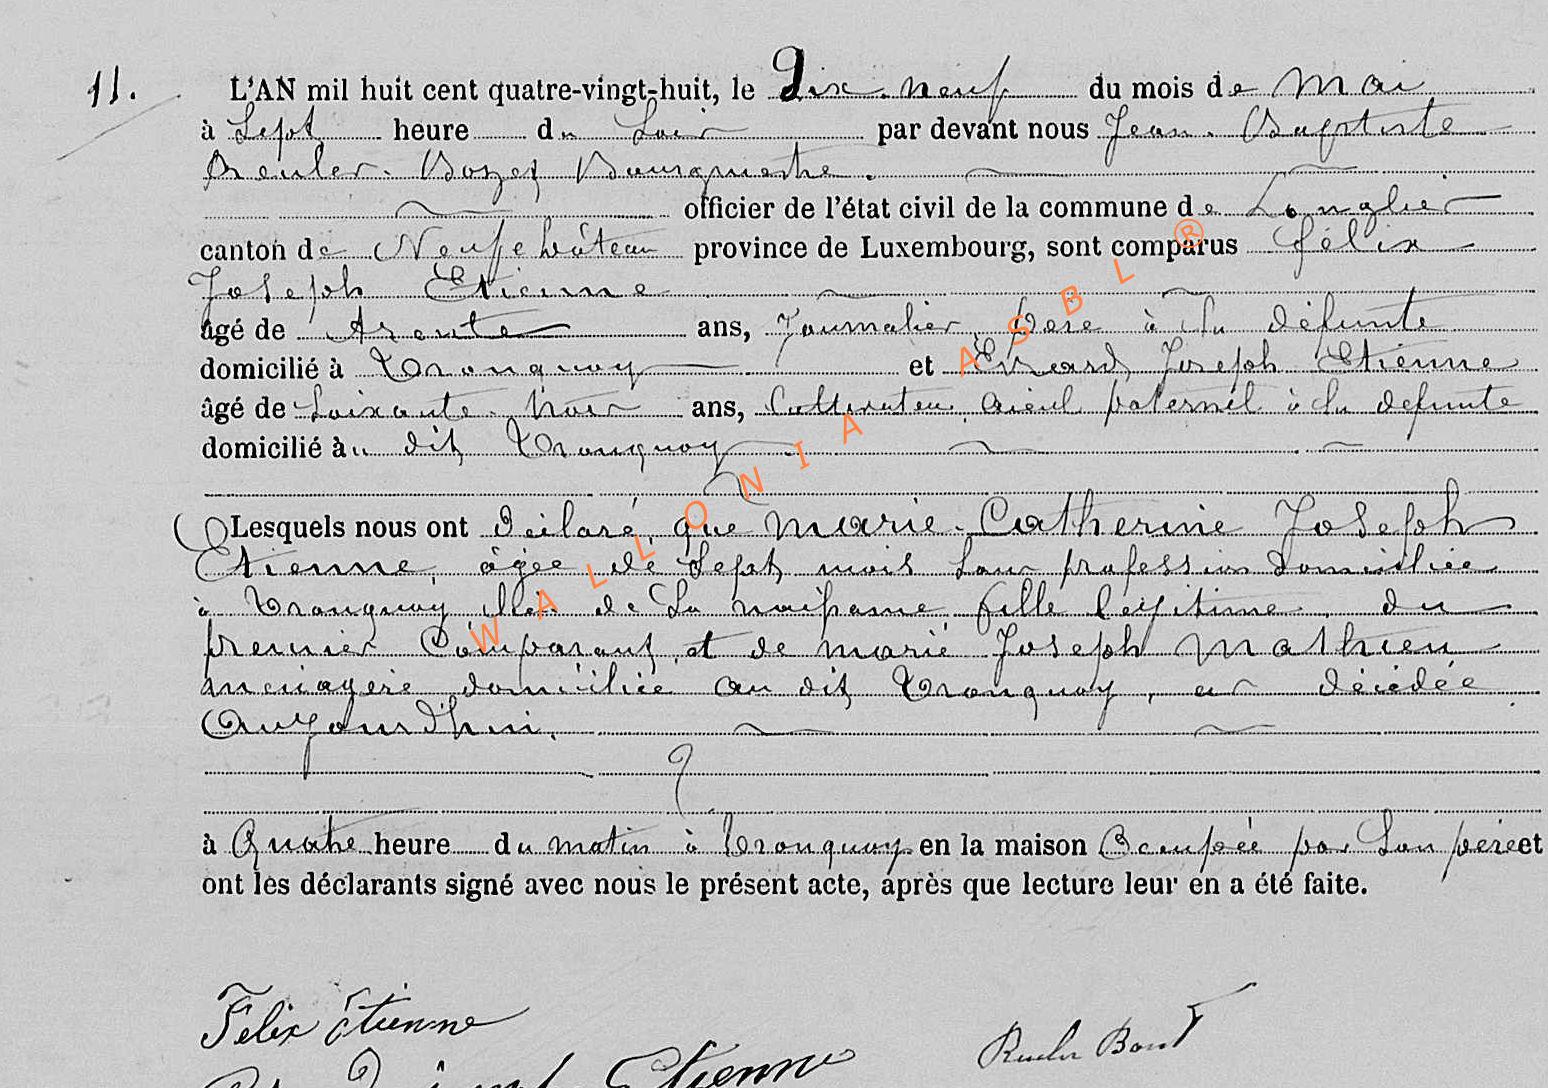 11. L'AN mil huit cent quatre-vingt-huit, le Dix-neuf du mois de Mai
à Sept heure du Soir par devant nous Jean-Baptiste
Reuler Bourgmestre.
officier de l'état civil de la commune de Longlier
canton de Neufchâteau province de Luxembourg, sont comparus Félix
Joseph Etienne
âgé de trente ans, Journalier, père à la défunte
domicilié à Tronquoy et Evrard Joseph Etienne
âgé de Soixante-trois ans, Cultivateur, aieul paternel à la defunte
domicilié àu dit Tronquoy
Lesquels nous ont déclaré, que Marie-Catherine Joseph
Etienne, âgée de Sept mois Sans profession domiciliée
à Tronquoy lieu de Sa naissance, fille légitime, du
premier Comparant, et de marie Joseph Mathieu
menagère domiciliée au dit Tronquoy, est décédée
Aujourd'hui.
à Quatre heure du matin à Tronquoy en la maison Occupée par Son père et
ont les déclarants signé avec nous le présent acte, après que lecture leur en a été faite.
Félix Etienne
Etienne
WALLONIA ASBL ®